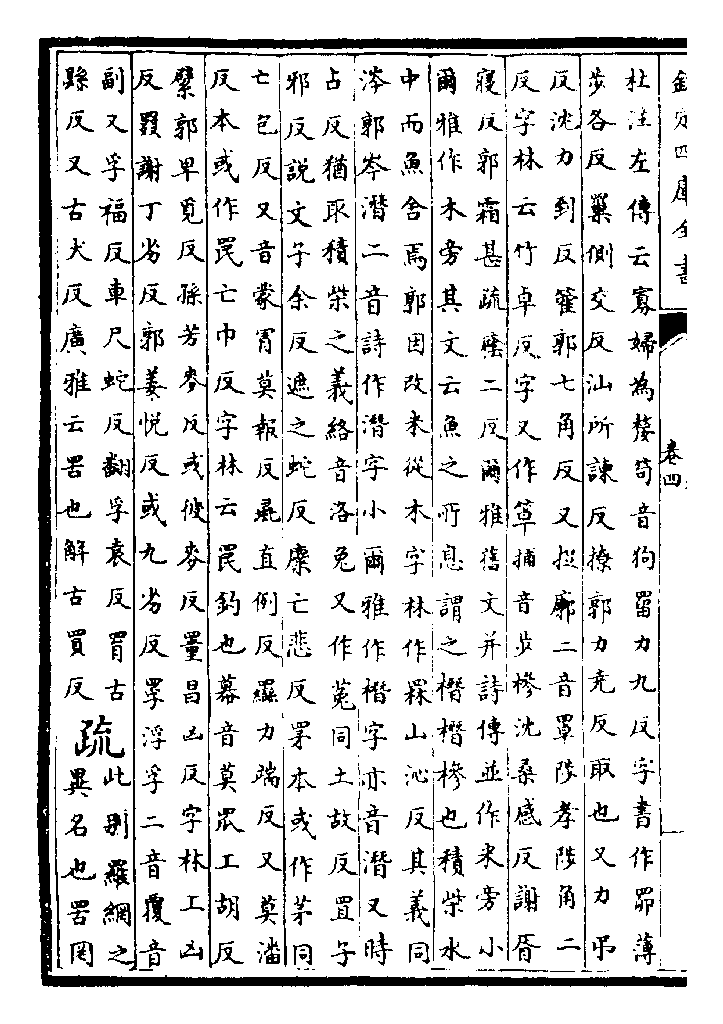 欽定四庫全書
卷四
杜注左傳云寡婦為嫠笱音狗罶力九反字書作罶薄
步各反巢側交反汕所諫反撩郭力堯反取也又力弔
反沈力到反籗郭七角反又捉廓二音罩陟孝陟角二
反字林云竹卓反字又作箌捕音步椮沈桑感反謝胥
寑反郭霜甚疏廕二反爾雅舊文并詩傳並作米旁小
爾雅作木旁其文云魚之所息謂之橬橬椮也積柴水
中而魚舍焉郭因改米從木字林作罧山沁反其義同
涔郭岑潛二音詩作潛字小爾雅作橬字亦音潛又時
占反猶取積柴之義絡音洛兔又作菟同土故反罝子
邪反說文子余反遮之蛇反麋亡悲反罞本或作茅同
亡包反又音蒙罥莫報反彘直例反羉力端反又莫潘
反本或作罠亡巾反字林云罠釣也幕音莫罛工胡反
繴郭卑覓反孫芳麥反或彼麥反罿昌凶反字林工凶
反罬謝丁劣反郭姜悅反或九劣反罦浮孚二音覆音
副又孚福反車尺蛇反翻孚袁反罥古
縣反又古犬反廣雅云罟也解古買反
疏
此別羅網之
異名也罟罔